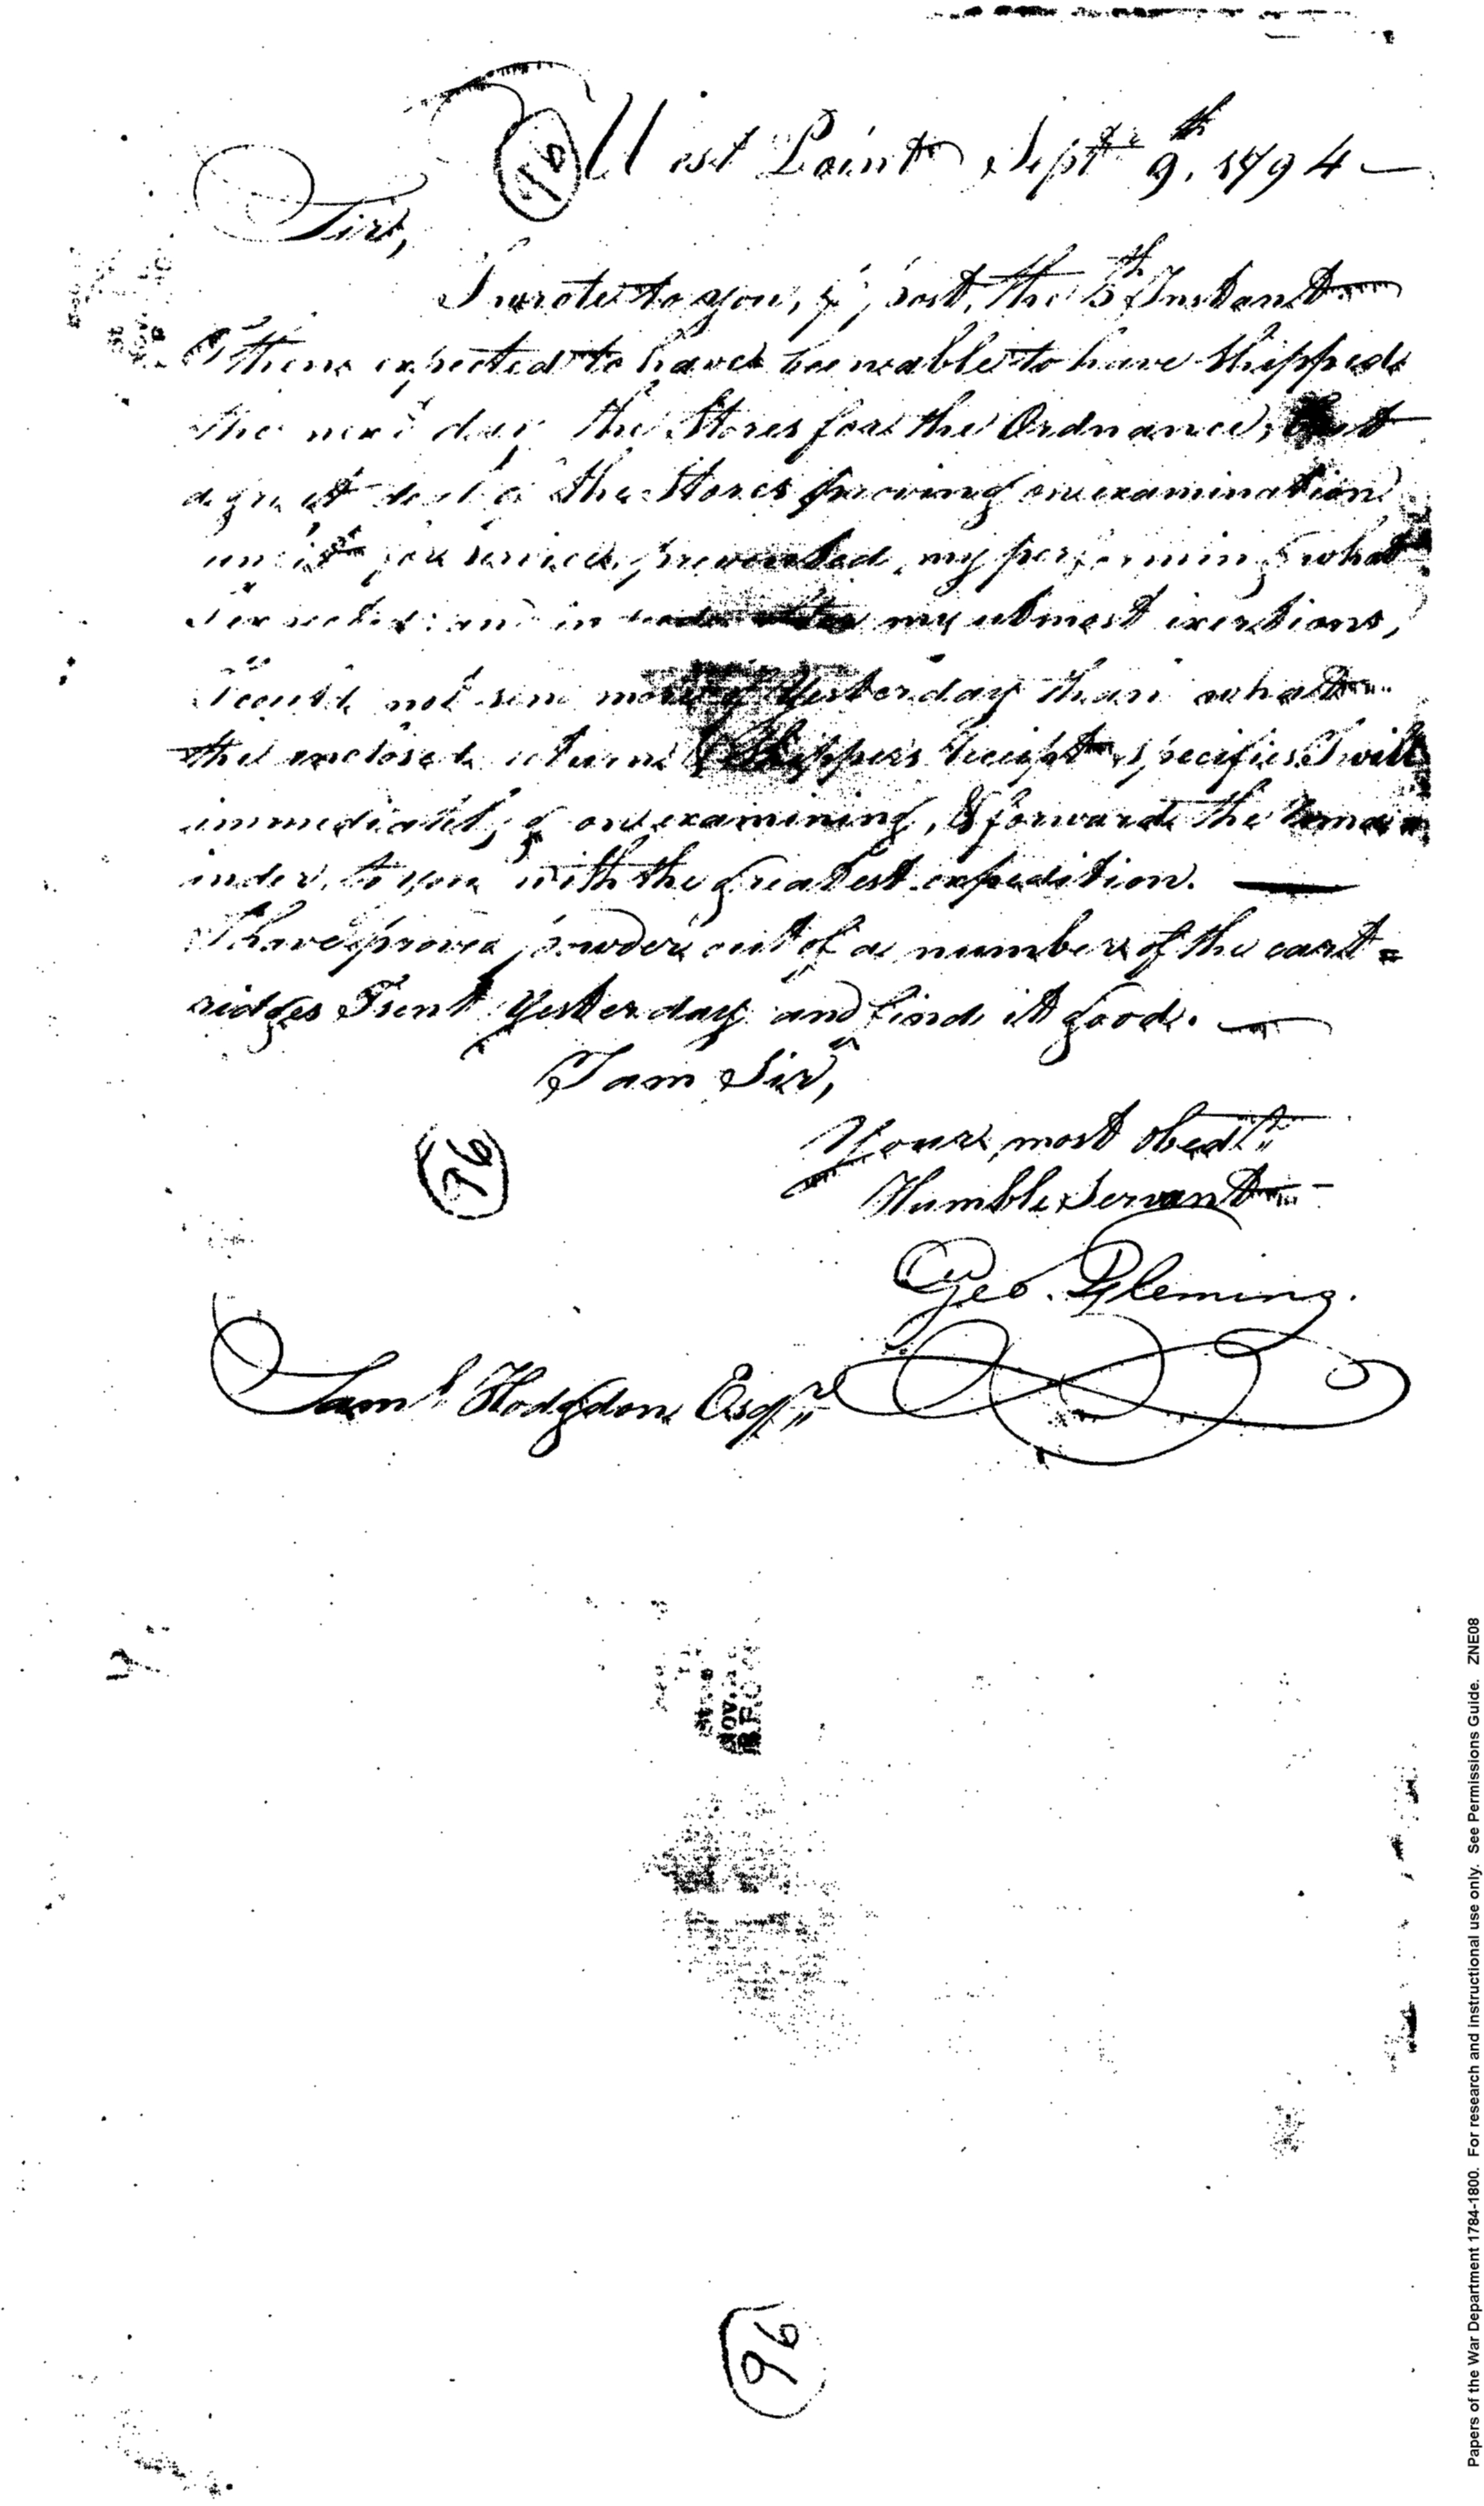 96
West Point Septr. 9th, 1794 —
Sir,
I wrote to you, by post, the 5th Instant
I then expected to have been able to have Shipped
the next day the Stores for the Ordnance; But
a great deal of the Stores proving on examination
unfit for service, prevented my performing what
I expected: and in my utmost exertions,
I could not send more Yesterday than what
the enclosed return & Shippers receipt specifies. I will
immediately go on examining, & forward the rema
inder, to you with the greatest expedition. —
I have proved powder out of a number of the cart =
ridges I sent Yesterday and find it good. —
I am Sir,
Your most obedt.
Humble Servant
96
Geo. Fleming.
Saml Hodgdon Esqr.
NOV.
96
Papers of the War Department 1784-1800. For research and instructional use only. See Permissions Guide. ZNE08